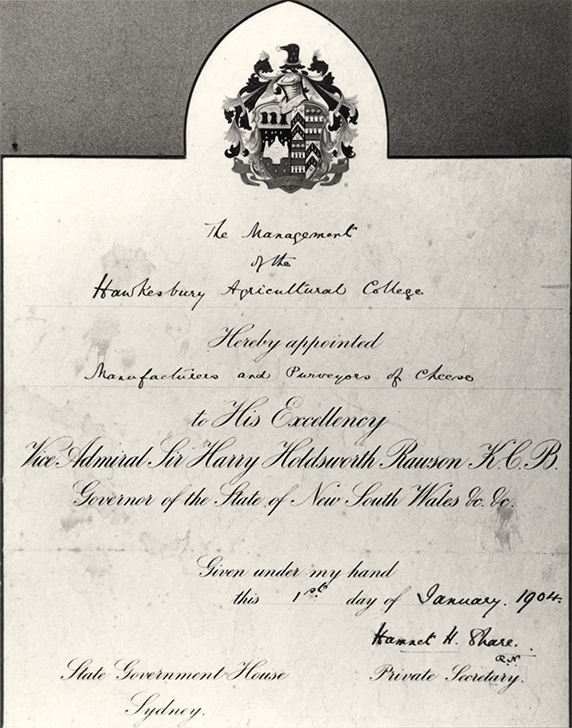 The Management
of the
Hawkesbury Agricultural College
Hereby appointed
Manufacturers and Purveyors of Cheese
to His Excellency
Vice Admiral Sir Harry Holdsworth Rawson K.C.B.
Governor of the State of New South Wales &c. &c.
Given under my hand
this 1st day of January. 1904.
Hamnet H. Share.
R.N.
State Government House Private Secretary.
Sydney.